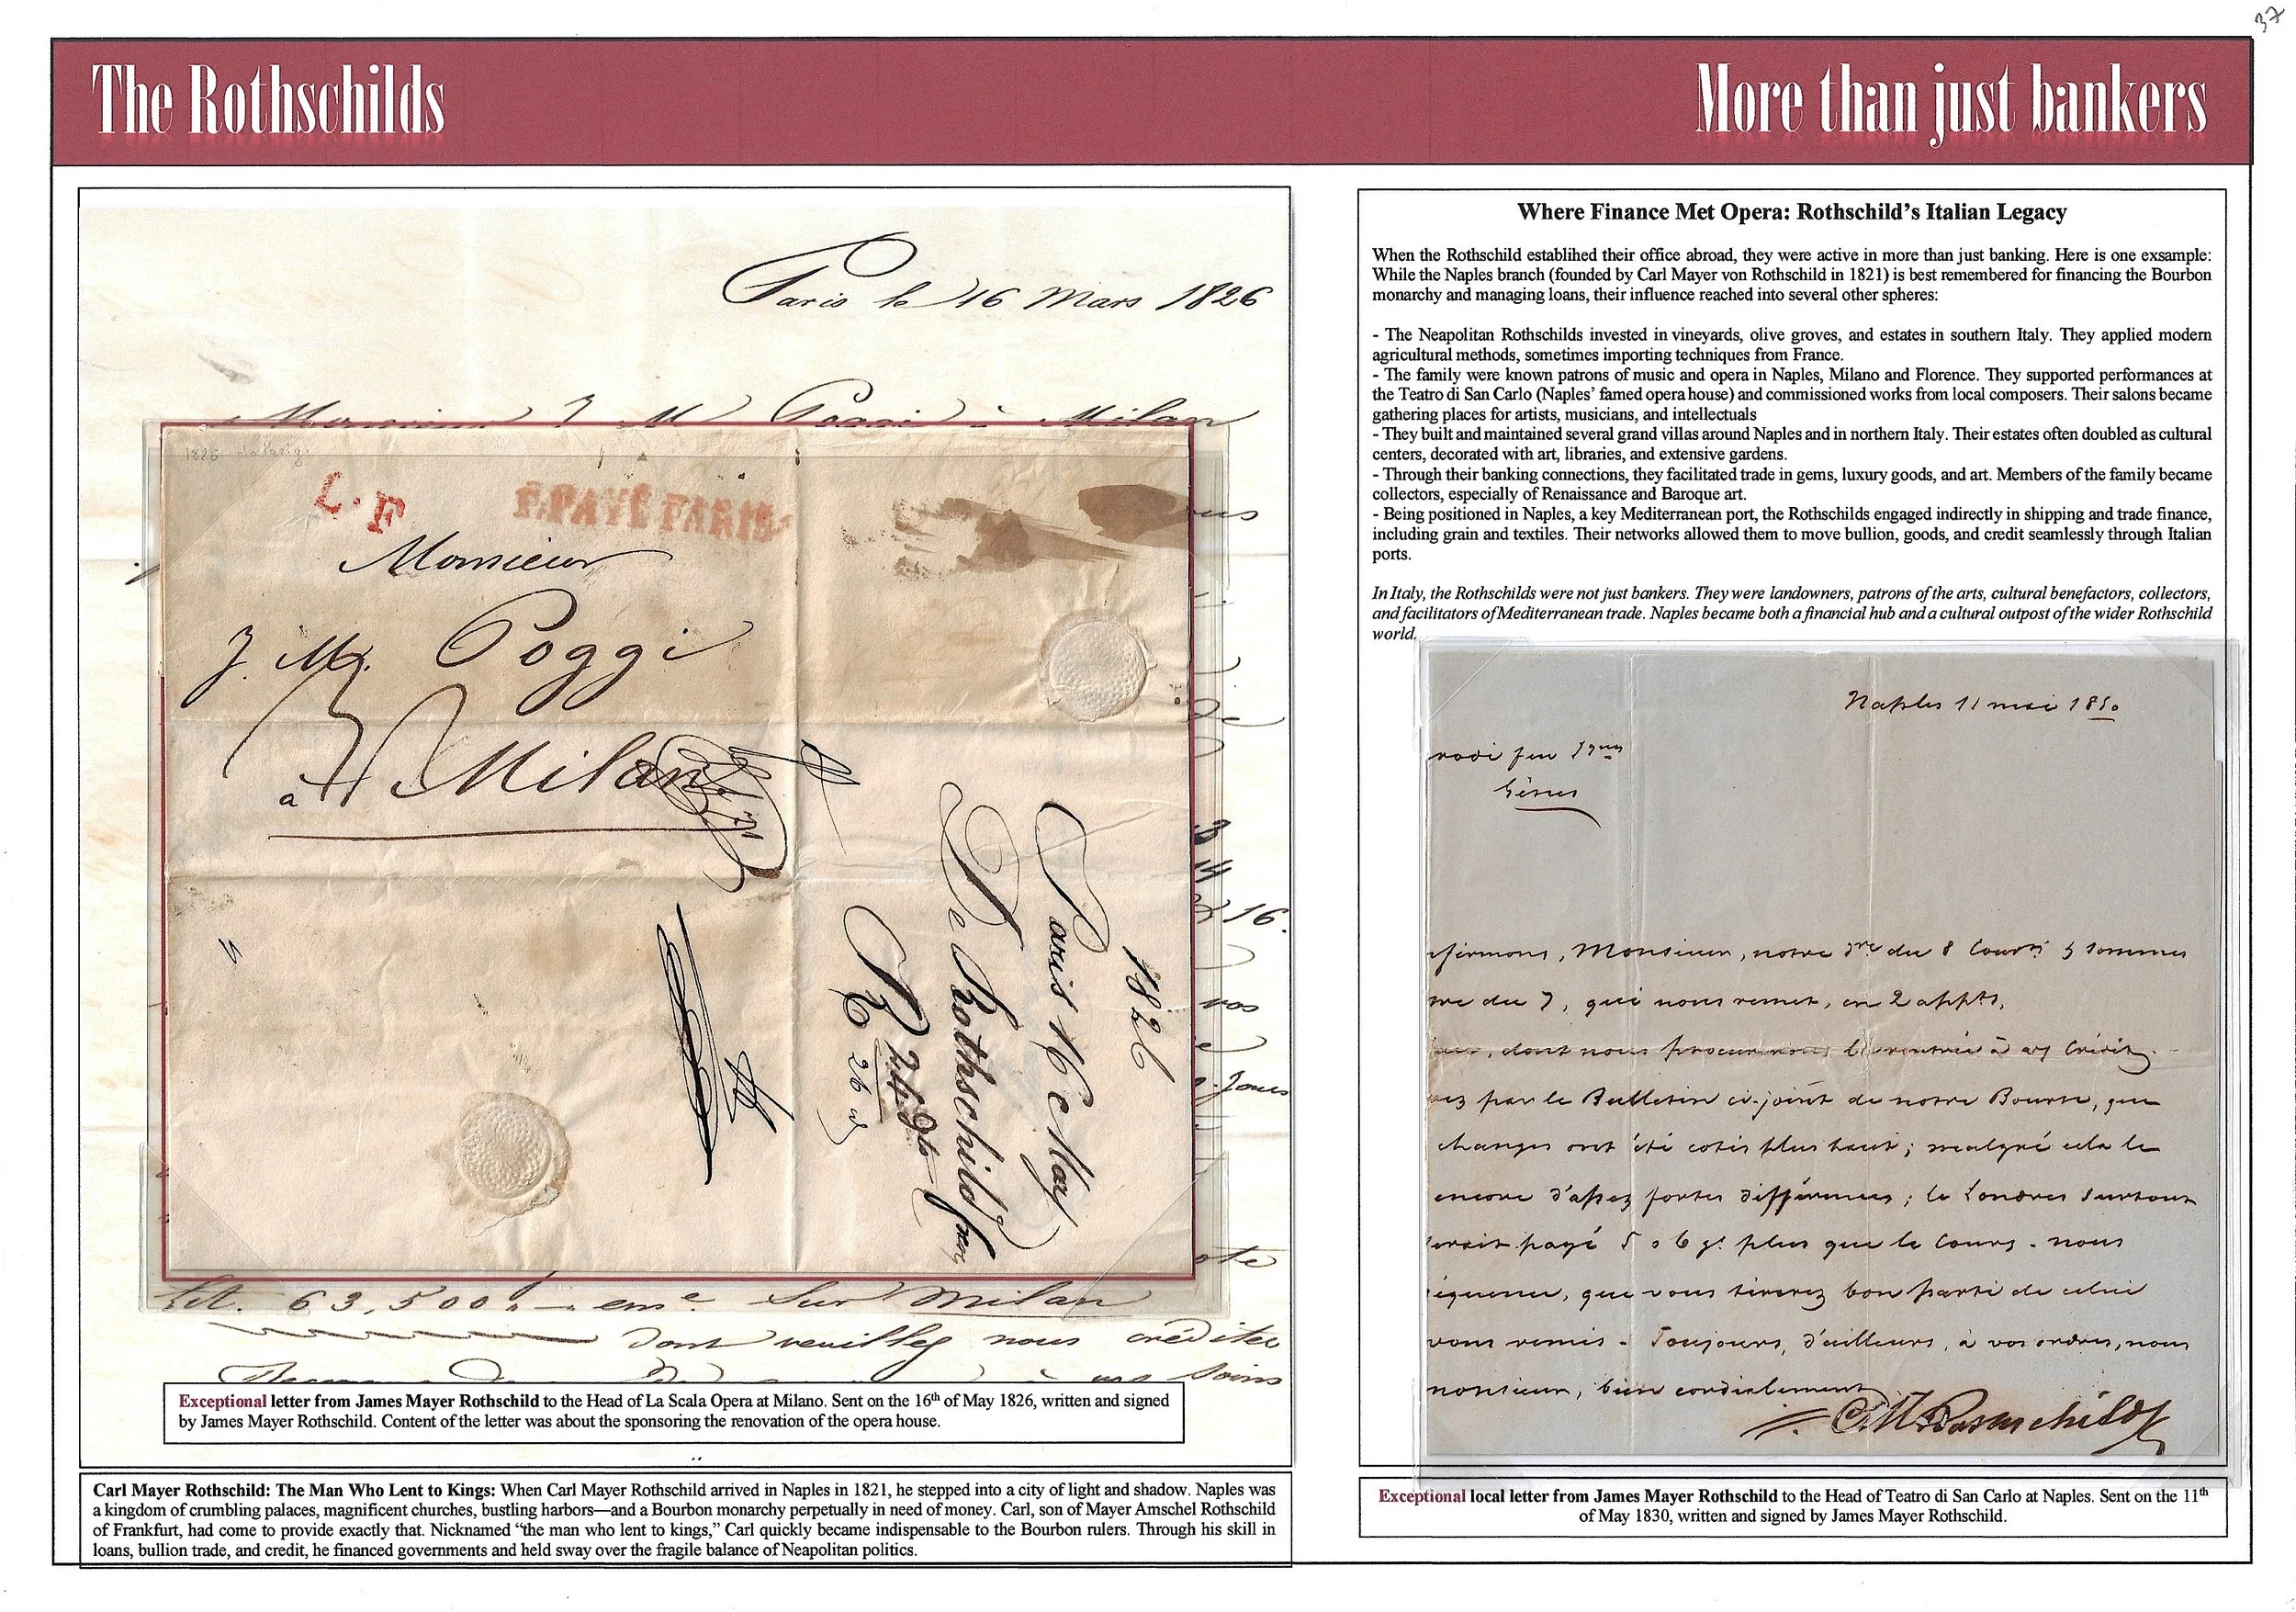 37
The Rothschilds
More than just bankers
Paris le 16 Mars 1826
Monsieur J. M. Poggi à Milan
1826
L.F
F.PAYÉ PARIS
Monsieur
J. M. Poggi
à Milan
1826
Paris 16 May
De Rothschild
16.
vos
Lit. 63,500 Sur Milan
dont veuillez nous créditer
soins
Exceptional letter from James Mayer Rothschild to the Head of La Scala Opera at Milano. Sent on the 16th of May 1826, written and signed
by James Mayer Rothschild. Content of the letter was about the sponsoring the renovation of the opera house.
Carl Mayer Rothschild: The Man Who Lent to Kings: When Carl Mayer Rothschild arrived in Naples in 1821, he stepped into a city of light and shadow. Naples was
a kingdom of crumbling palaces, magnificent churches, bustling harbors—and a Bourbon monarchy perpetually in need of money. Carl, son of Mayer Amschel Rothschild
of Frankfurt, had come to provide exactly that. Nicknamed “the man who lent to kings,” Carl quickly became indispensable to the Bourbon rulers. Through his skill in
loans, bullion trade, and credit, he financed governments and held sway over the fragile balance of Neapolitan politics.
Where Finance Met Opera: Rothschild’s Italian Legacy
When the Rothschild establihed their office abroad, they were active in more than just banking. Here is one exsample:
While the Naples branch (founded by Carl Mayer von Rothschild in 1821) is best remembered for financing the Bourbon
monarchy and managing loans, their influence reached into several other spheres:
- The Neapolitan Rothschilds invested in vineyards, olive groves, and estates in southern Italy. They applied modern
agricultural methods, sometimes importing techniques from France.
- The family were known patrons of music and opera in Naples, Milano and Florence. They supported performances at
the Teatro di San Carlo (Naples’ famed opera house) and commissioned works from local composers. Their salons became
gathering places for artists, musicians, and intellectuals
- They built and maintained several grand villas around Naples and in northern Italy. Their estates often doubled as cultural
centers, decorated with art, libraries, and extensive gardens.
- Through their banking connections, they facilitated trade in gems, luxury goods, and art. Members of the family became
collectors, especially of Renaissance and Baroque art.
- Being positioned in Naples, a key Mediterranean port, the Rothschilds engaged indirectly in shipping and trade finance,
including grain and textiles. Their networks allowed them to move bullion, goods, and credit seamlessly through Italian
ports.
In Italy, the Rothschilds were not just bankers. They were landowners, patrons of the arts, cultural benefactors, collectors,
and facilitators of Mediterranean trade. Naples became both a financial hub and a cultural outpost of the wider Rothschild
world.
Naples 11 mai
Gênes
Monsieur, notre du 8 Court
du 7, qui nous remet, en 2 appts,
dont nous procurerons la rentrée à Crédit.
par le Bulletin ci-joint de notre Bourse, que
changes ont été cotés plus haut; malgré cela le
encore d'assez fortes différences; le Londres surtout
payé 5 à 6 plus que le cours. nous
que vous tirerez bon parti de celui
vous remis. Toujours, d'ailleurs, à vos ordres, nous
bien cordialement
C M Rothschild
Exceptional local letter from James Mayer Rothschild to the Head of Teatro di San Carlo at Naples. Sent on the 11th
of May 1830, written and signed by James Mayer Rothschild.